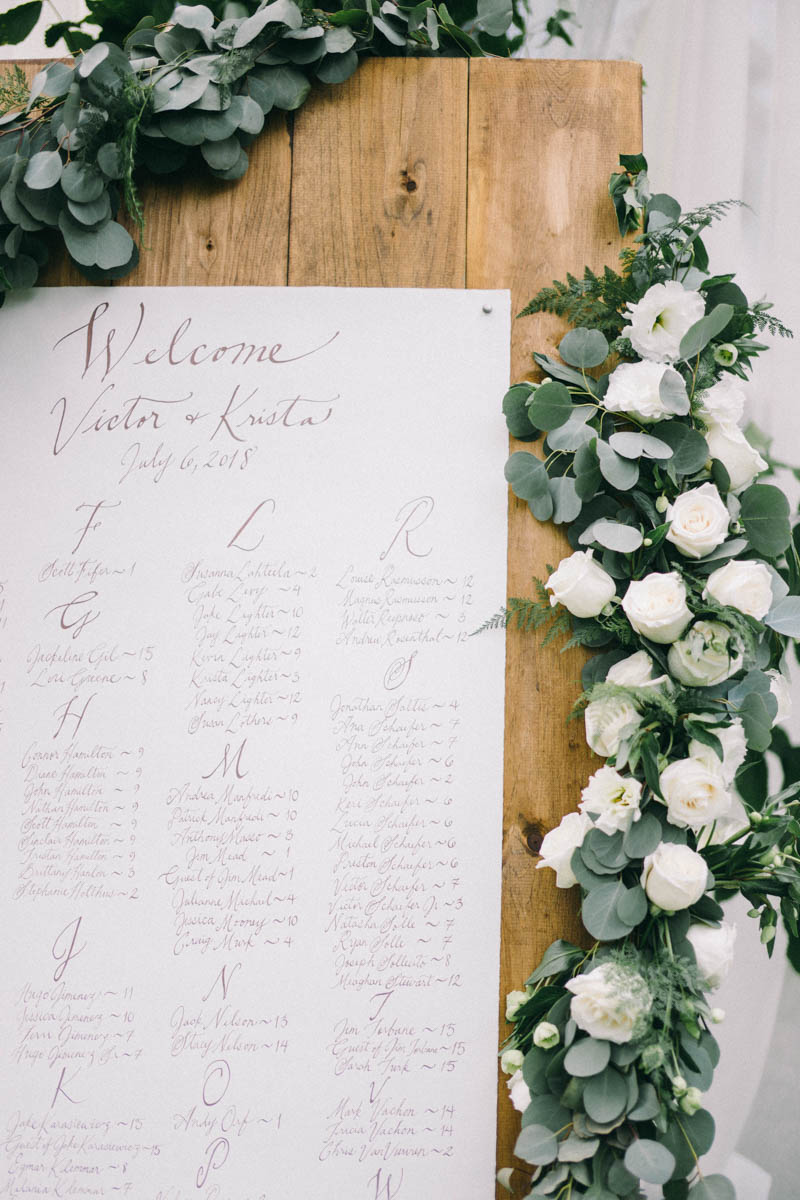 Welcome
Victor & Krista
July 6, 2018
F
Scott Fifer ~ 1
G
Jackeline Gil ~ 15
Lori Greene ~ 8
H
Connor Hamilton ~ 9
Diane Hamilton ~ 9
John Hamilton ~ 9
Nathan Hamilton ~ 9
Scott Hamilton ~ 9
Sinclair Hamilton ~ 9
Tristan Hamilton ~ 9
Brittany Hanlon ~ 3
Stephanie Holthus ~ 2
J
Hugo Jimenez ~ 11
Jessica Jimenez ~ 10
Jimenez ~ 7
Hugo Jimenez Sr ~ 7
K
Jake Karasiewicz ~ 15
Guest of Jake Karasiewicz ~ 15
Egmar Klemmar ~ 8
Melania Klemmar ~ 7
L
Susanna Lahteela ~ 2
Gabe Levy ~ 4
Jake Lighter ~ 10
Jay Lighter ~ 12
Kevin Lighter ~ 9
Krista Lighter ~ 3
Nancy Lighter ~ 12
Susan Lothers ~ 9
M
Andrea Manfredi ~ 10
Patrick Manfredi ~ 10
Anthony Maseo ~ 3
Jim Mead ~ 1
Guest of Jim Mead ~ 1
Julianne Michail ~ 4
Jessica Mooney ~ 10
Craig Murk ~ 4
N
Jack Nelson ~ 13
Stacy Nelson ~ 14
O
Andy Orf ~ 1
P
R
Louise Rasmusson ~ 12
Magnus Rasmusson ~ 12
Walter ~ 3
Andrew Rosenthal ~ 12
S
Jonathan Saltis ~ 4
Ana Schaifer ~ 7
Ann Schaifer ~ 7
John Schaifer ~ 6
John Schaifer ~ 2
Keri Schaifer ~ 6
Lucia Schaifer ~ 6
Michail Schaifer ~ 6
Preston Schaifer ~ 6
Victor Schaifer ~ 7
Victor Schaifer Jr ~ 3
Natasha Solle ~ 7
Ryan Solle ~ 7
Joseph Sollecito ~ 8
Meaghan Stewart ~ 12
T
Jim Torbane ~ 15
Guest of Jim Torbane ~ 15
Sarah Turk ~ 15
V
Mark Vachon ~ 14
Tricia Vachon ~ 14
Chris VanVuuren ~ 2
W